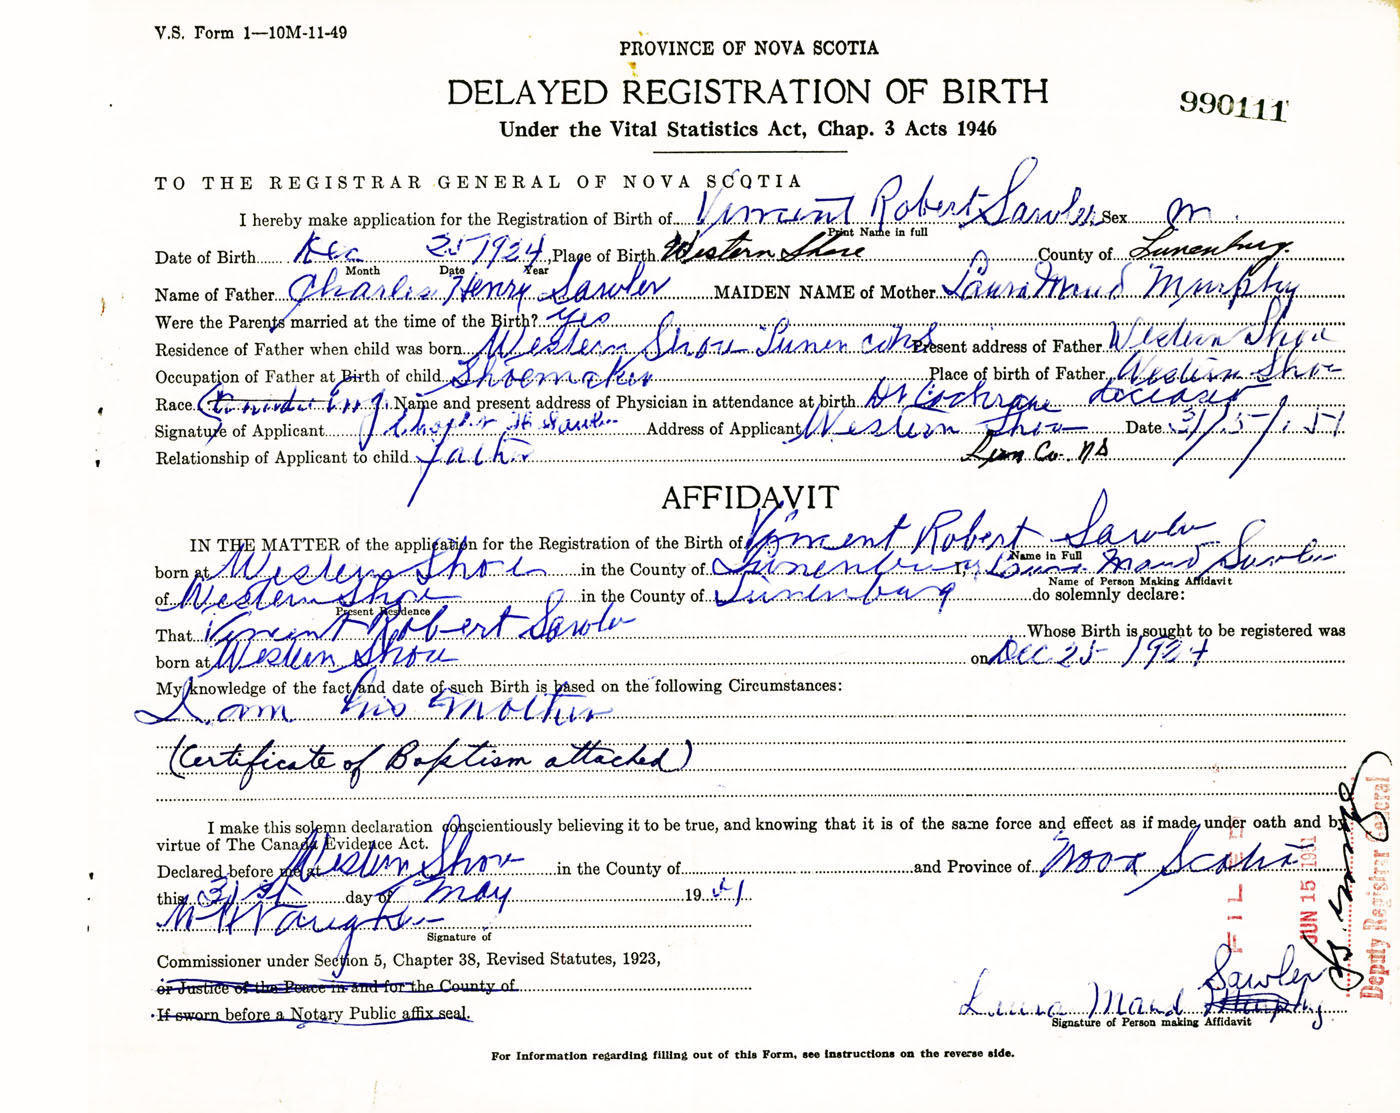 V.S. Form 1—10M-11-49
PROVINCE OF NOVA SCOTIA
DELAYED REGISTRATION OF BIRTH
990111
Under the Vital Statistics Act, Chap. 3 Acts 1946
TO THE REGISTRAR GENERAL OF NOVA SCOTIA
I hereby make application for the Registration of Birth of Vincent Robert Sawler Sex M.
Print Name in full
Date of Birth Dec 25 1924, Place of Birth Western Shore County of Lunenburg.
Month Date Year
Name of Father Charles Henry Sawler MAIDEN NAME of Mother Laura Maud Murphy
Were the Parents married at the time of the Birth? yes
Residence of Father when child was born Western Shore Lunen Present address of Father Western Shore
Occupation of Father at Birth of child Shoemaker Place of birth of Father Western Shore
Race Eng. Name and present address of Physician in attendance at birth Dr Cochrane deceased
Signature of Applicant H Sawler Address of Applicant Western Shore Date 31/5/51
Relationship of Applicant to child father Lun Co. NS
AFFIDAVIT
IN THE MATTER of the application for the Registration of the Birth of Vincent Robert Sawler
Name in Full
born at Western Shore in the County of Lunenburg I, Laura Maud Sawler
Name of Person Making Affidavit
of Western Shore in the County of Lunenburg do solemnly declare:
Present Residence
That Vincent Robert Sawler Whose Birth is sought to be registered was
born at Western Shore on Dec 25 1924
My knowledge of the fact and date of such Birth is based on the following Circumstances:
I am his mother
(Certificate of Baptism attached)
I make this solemn declaration conscientiously believing it to be true, and knowing that it is of the same force and effect as if made under oath and by
virtue of The Canada Evidence Act.
Declared before me at Western Shore in the County of and Province of Nova Scotia
this 31st day of May 1951
Signature of
Commissioner under Section 5, Chapter 38, Revised Statutes, 1923,
or Justice of the Peace in and for the County of
If sworn before a Notary Public affix seal.
Laura Maud Sawler
Signature of Person making Affidavit
FILED
JUN 15 1951
Deputy Registrar General
For Information regarding filling out of this Form, see instructions on the reverse side.